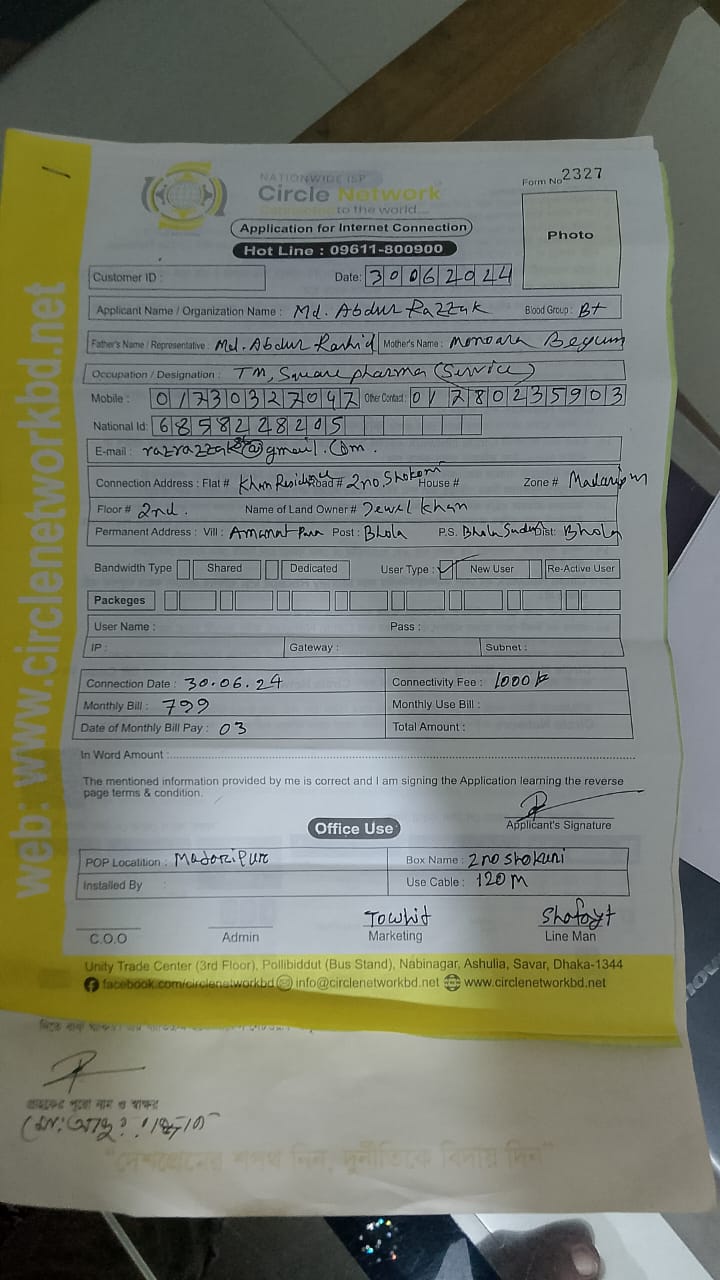 NATIONWIDE ISP
Circle Network
Connected to the world....
Form No 2327
Application for Internet Connection
Hot Line : 09611-800900
Photo
Customer ID :
Date: 30062024
Applicant Name / Organization Name : Md. Abdur Razzak Blood Group : B+
Father's Name / Representative : Md. Abdur Rashid Mother's Name : Monoara Begum
Occupation / Designation : TM, Square pharma (Service)
Mobile : 01730327047 Other Contact : 01780235903
National Id: 6858228205
E-mail : @gmail.com.
Connection Address : Flat # Khan Residence Road # 2no, Shokoni House # Zone # Madaripur
Floor # 2nd. Name of Land Owner # Jewel Khan
Permanent Address : Vill : Amanat Para Post : Bhola P.S. Bhola Sadar Dist: Bhola
Bandwidth Type Shared Dedicated User Type : New User Re-Active User
Packeges
User Name : Pass :
IP : Gateway : Subnet :
Connection Date : 30.06.24 Connectivity Fee : 1000
Monthly Bill : 799 Monthly Use Bill :
Date of Monthly Bill Pay : 03 Total Amount :
In Word Amount :
The mentioned information provided by me is correct and I am signing the Application learning the reverse
page terms & condition.
Applicant's Signature
Office Use
POP Locatition : Madaripur Box Name : 2no Shokuni
Installed By : Use Cable : 120M
Towhit Shofayt
C.O.O Admin Marketing Line Man
Unity Trade Center (3rd Floor), Pollibiddut (Bus Stand), Nabinagar, Ashulia, Savar, Dhaka-1344
facebook.com/circlenetworkbd info@circlenetworkbd.net www.circlenetworkbd.net
web: www.circlenetworkbd.net
গ্রাহকের পুরো নাম ও স্বাক্ষর
"দেশপ্রেমের শপথ নিন, দুর্নীতিকে বিদায় দিন"